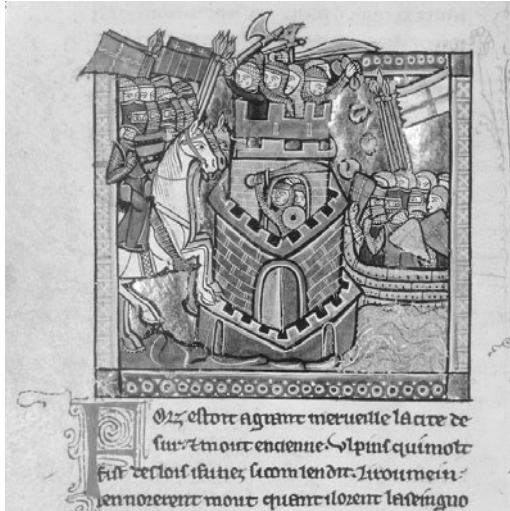 Orz estoit a grant merueille la cite de
sur. & mout encienne. Vlpins qui molt
fist des lois i fu nez si com len dit. Li roumein
ennorerent mout quant il orent la seingno